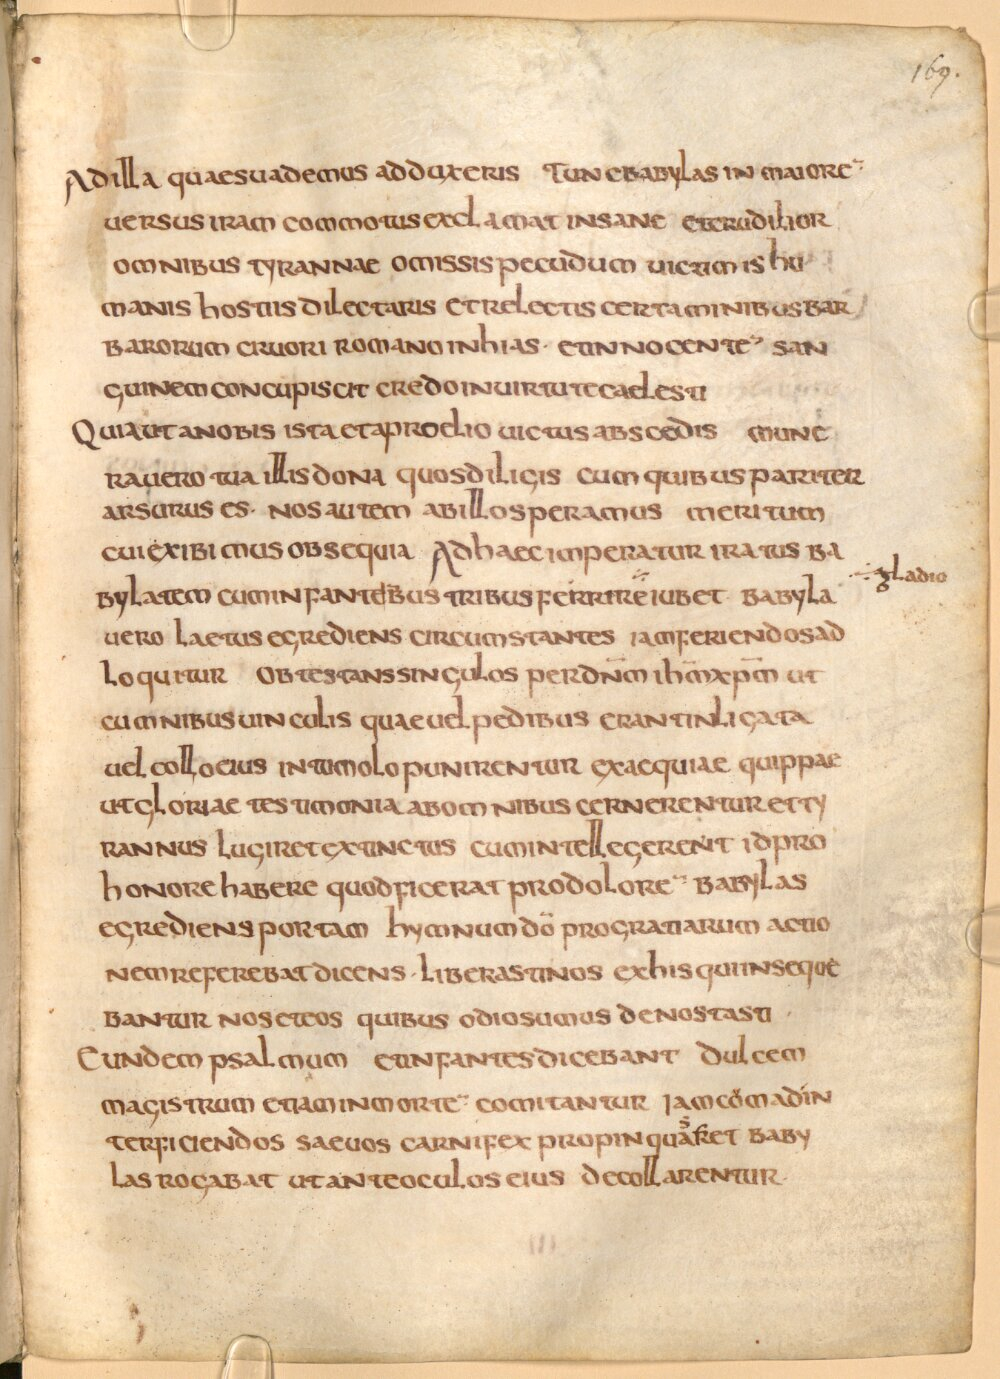 169.
Adilla quaesuademus adduxeris Tuncbabylas in maiore˜
uersus iram commotus exclamat insane etcrudilior
omnibus tyrannae omissis pecudum uictimis hu
manis hostiis dilectaris et relectis certaminibus bar
barorum cruori romano inhias· et innocente˜ san
guinem concupiscit credo in uirtute caelesti
Quia ut a nobis ista et a proelio uictus abscedis mune
rauero tua illis dona quos diligis cum quibus pariter
arsurus es· nos autem ab illo speramus meritum
cui exibimus obsequia Ad haec imperatur iratus ba
bylatem cum infantibus tribus ferrire iubet babyla
gladio
uero laetus egrediens circumstantes iam feriendos ad
loquitur Obtestans singulos per dn̄m ih̄m xp̄m ut
cum nibus uinculis quae uel pedibus erant inligata
uel collo eius in tumolo punirentur exaequiae quippae
ut gloriae testimonia ab omnibus cernerentur et ty
rannus lugiret extinctus cum intellegerent id pro
honore habere quod ficerat pro dolore˜ babylas
egrediens portam hymnum dō pro gratiarum actio
nem referebat dicens· liberasti nos ex his qui inseque
bantur nos et eos quibus odio sumus denostasti·
Eundem psalmum et infantes dicebant dulcem
magistrum etiam in morte˜ comitantur iam com ad in
terficiendos saeuos carnifex propinquasset baby
las rogabat ut ante oculos eius decollarentur·